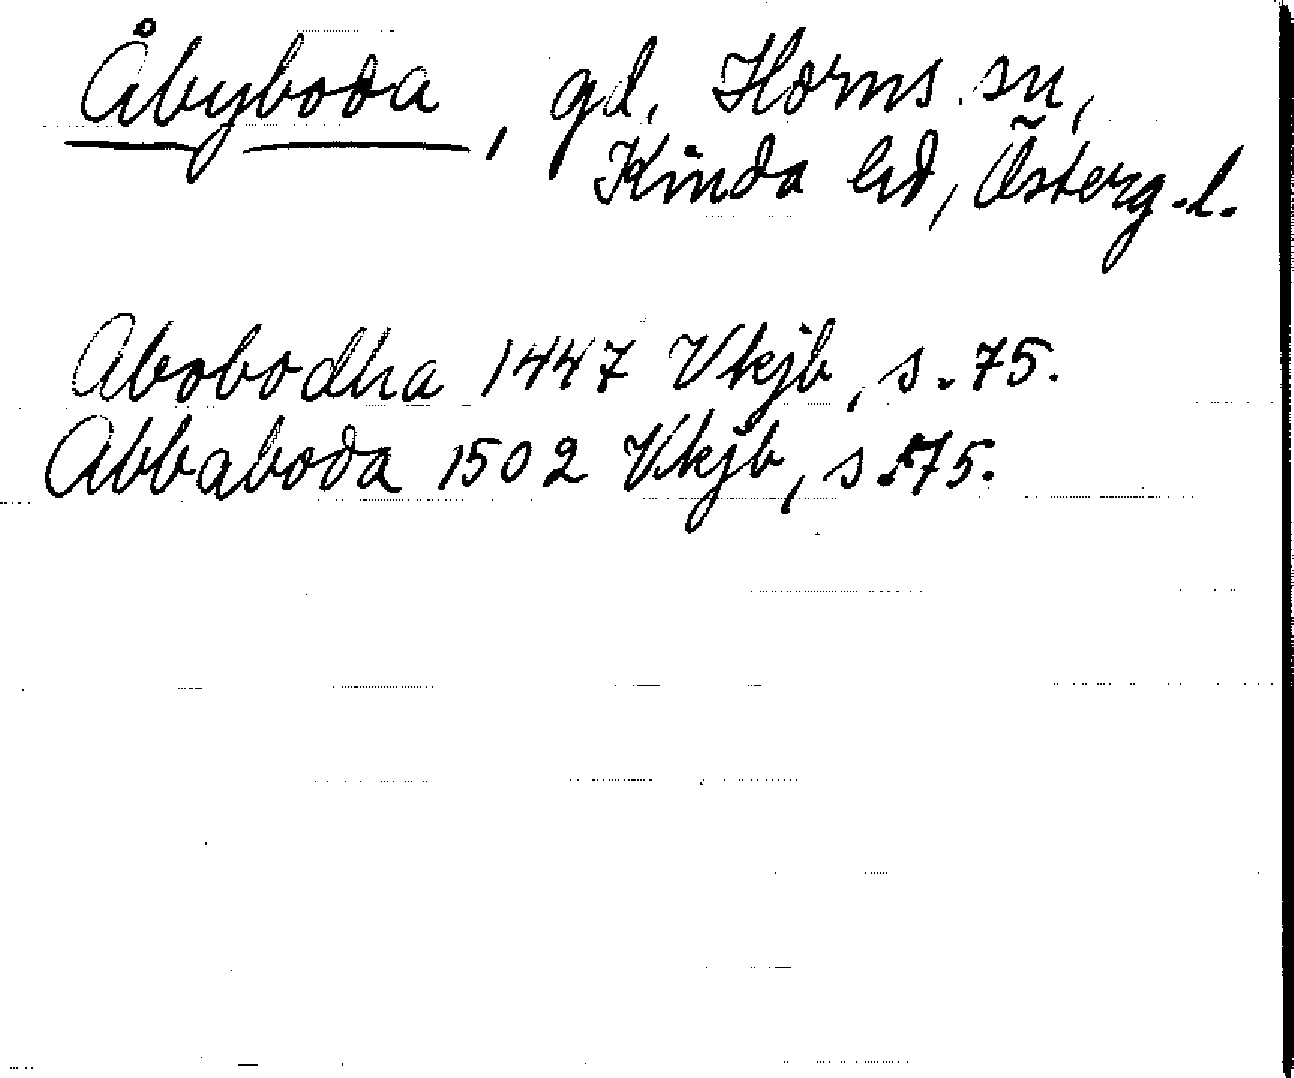 Åbyboda, gd, Horns sn,
Kinda hd, Österg.l.
Abobodha 1447 Vkjb, s. 75.
Abbaboda 1502 Vkjb, s. 75.